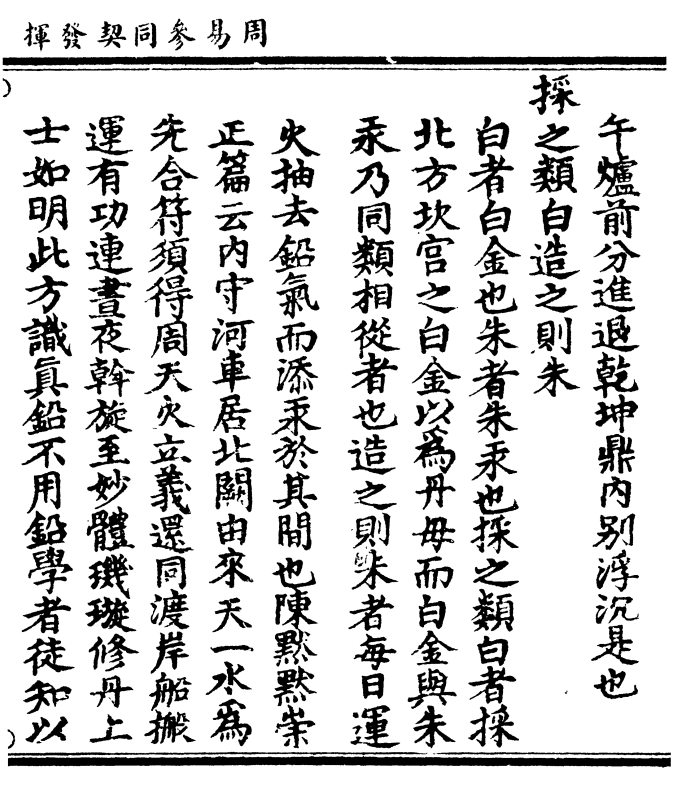 周易參同契發揮
午爐前分進退乾坤鼎內别浮沉是也
採之類白造之則朱
白者白金也朱者朱汞也採之類白者採
北方坎宮之白金以爲丹母而白金與朱
汞乃同類相從者也造之則朱者每日運
火抽去鉛氣而添汞於其間也陳默默崇
正篇云內守河車居北闕由來天一水爲
先合符須得周天火立義還同渡岸船搬
運有功連晝夜斡旋至妙體璣璇修丹上
士如明此方識眞鉛不用鉛學者徒知以